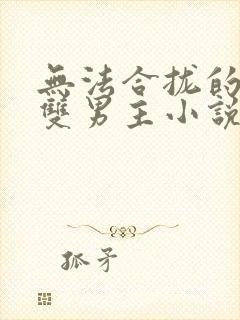 無法合拢的
雙男主小說
孤矛